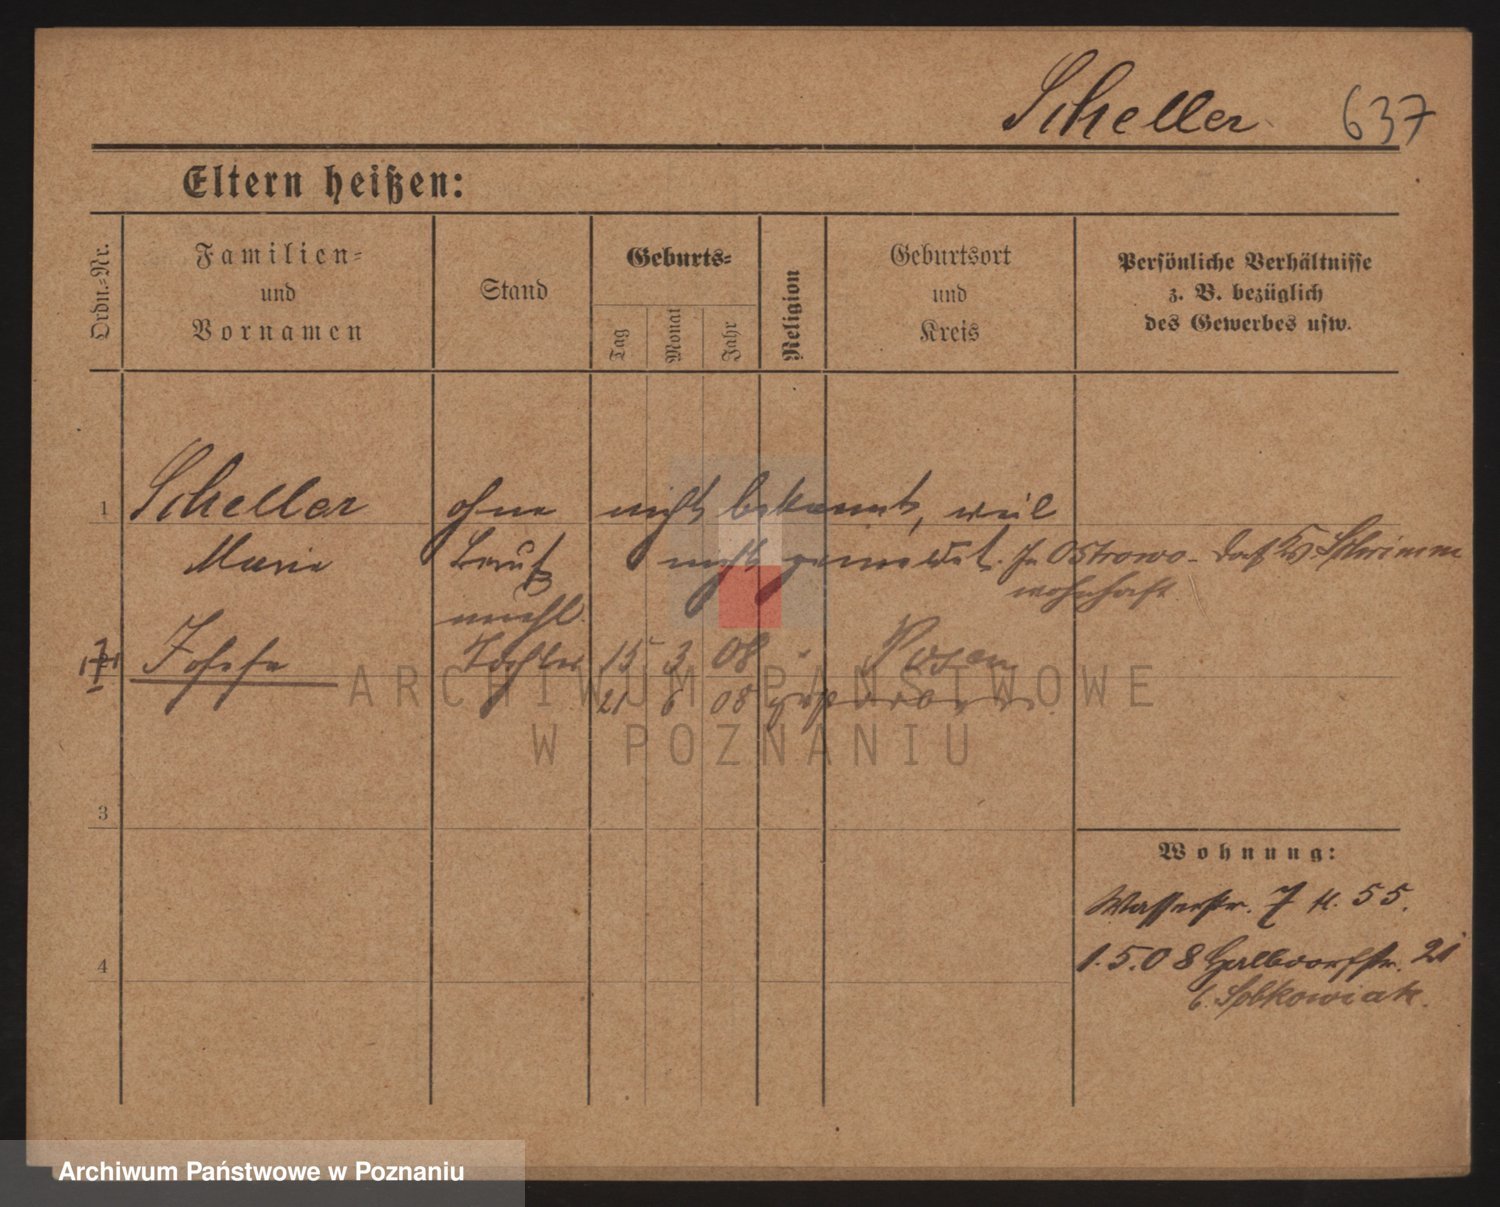 Scheller 637
Eltern heißen:
Ordn.-Nr.
Familien-
und
Vornamen
Stand
Geburts-
Tag
Monat
Jahr
Religion
Geburtsort
und
Kreis
Persönliche Verhältnisse
z. B. bezüglich
des Gewerbes usw.
1 Scheller ohne nicht bekannt, weil
Marie Beruf nicht gemeldet. In Ostrowo - Schrimm
wohnhaft.
unehl.
Josefa Tochter 15 3 08 Posen
21 6 08 gestorben.
ARCHIWUM PAŃSTWOWE
W POZNANIU
3
Wohnung:
Wasserstr. 7 55.
4
1.5.08 Halbdorfstr. 21
b. Sobkowiak.
Archiwum Państwowe w Poznaniu